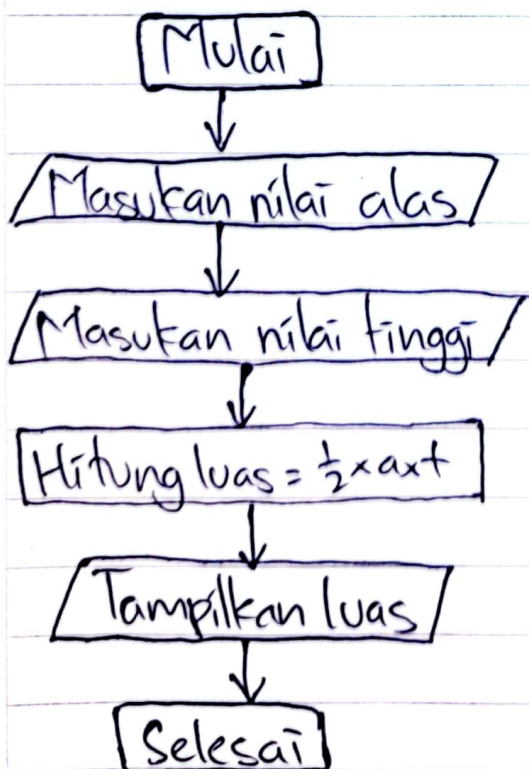 Mulai
Masukan nilai alas
Masukan nilai tinggi
Hitung luas = ½ x a x t
Tampilkan luas
Selesai